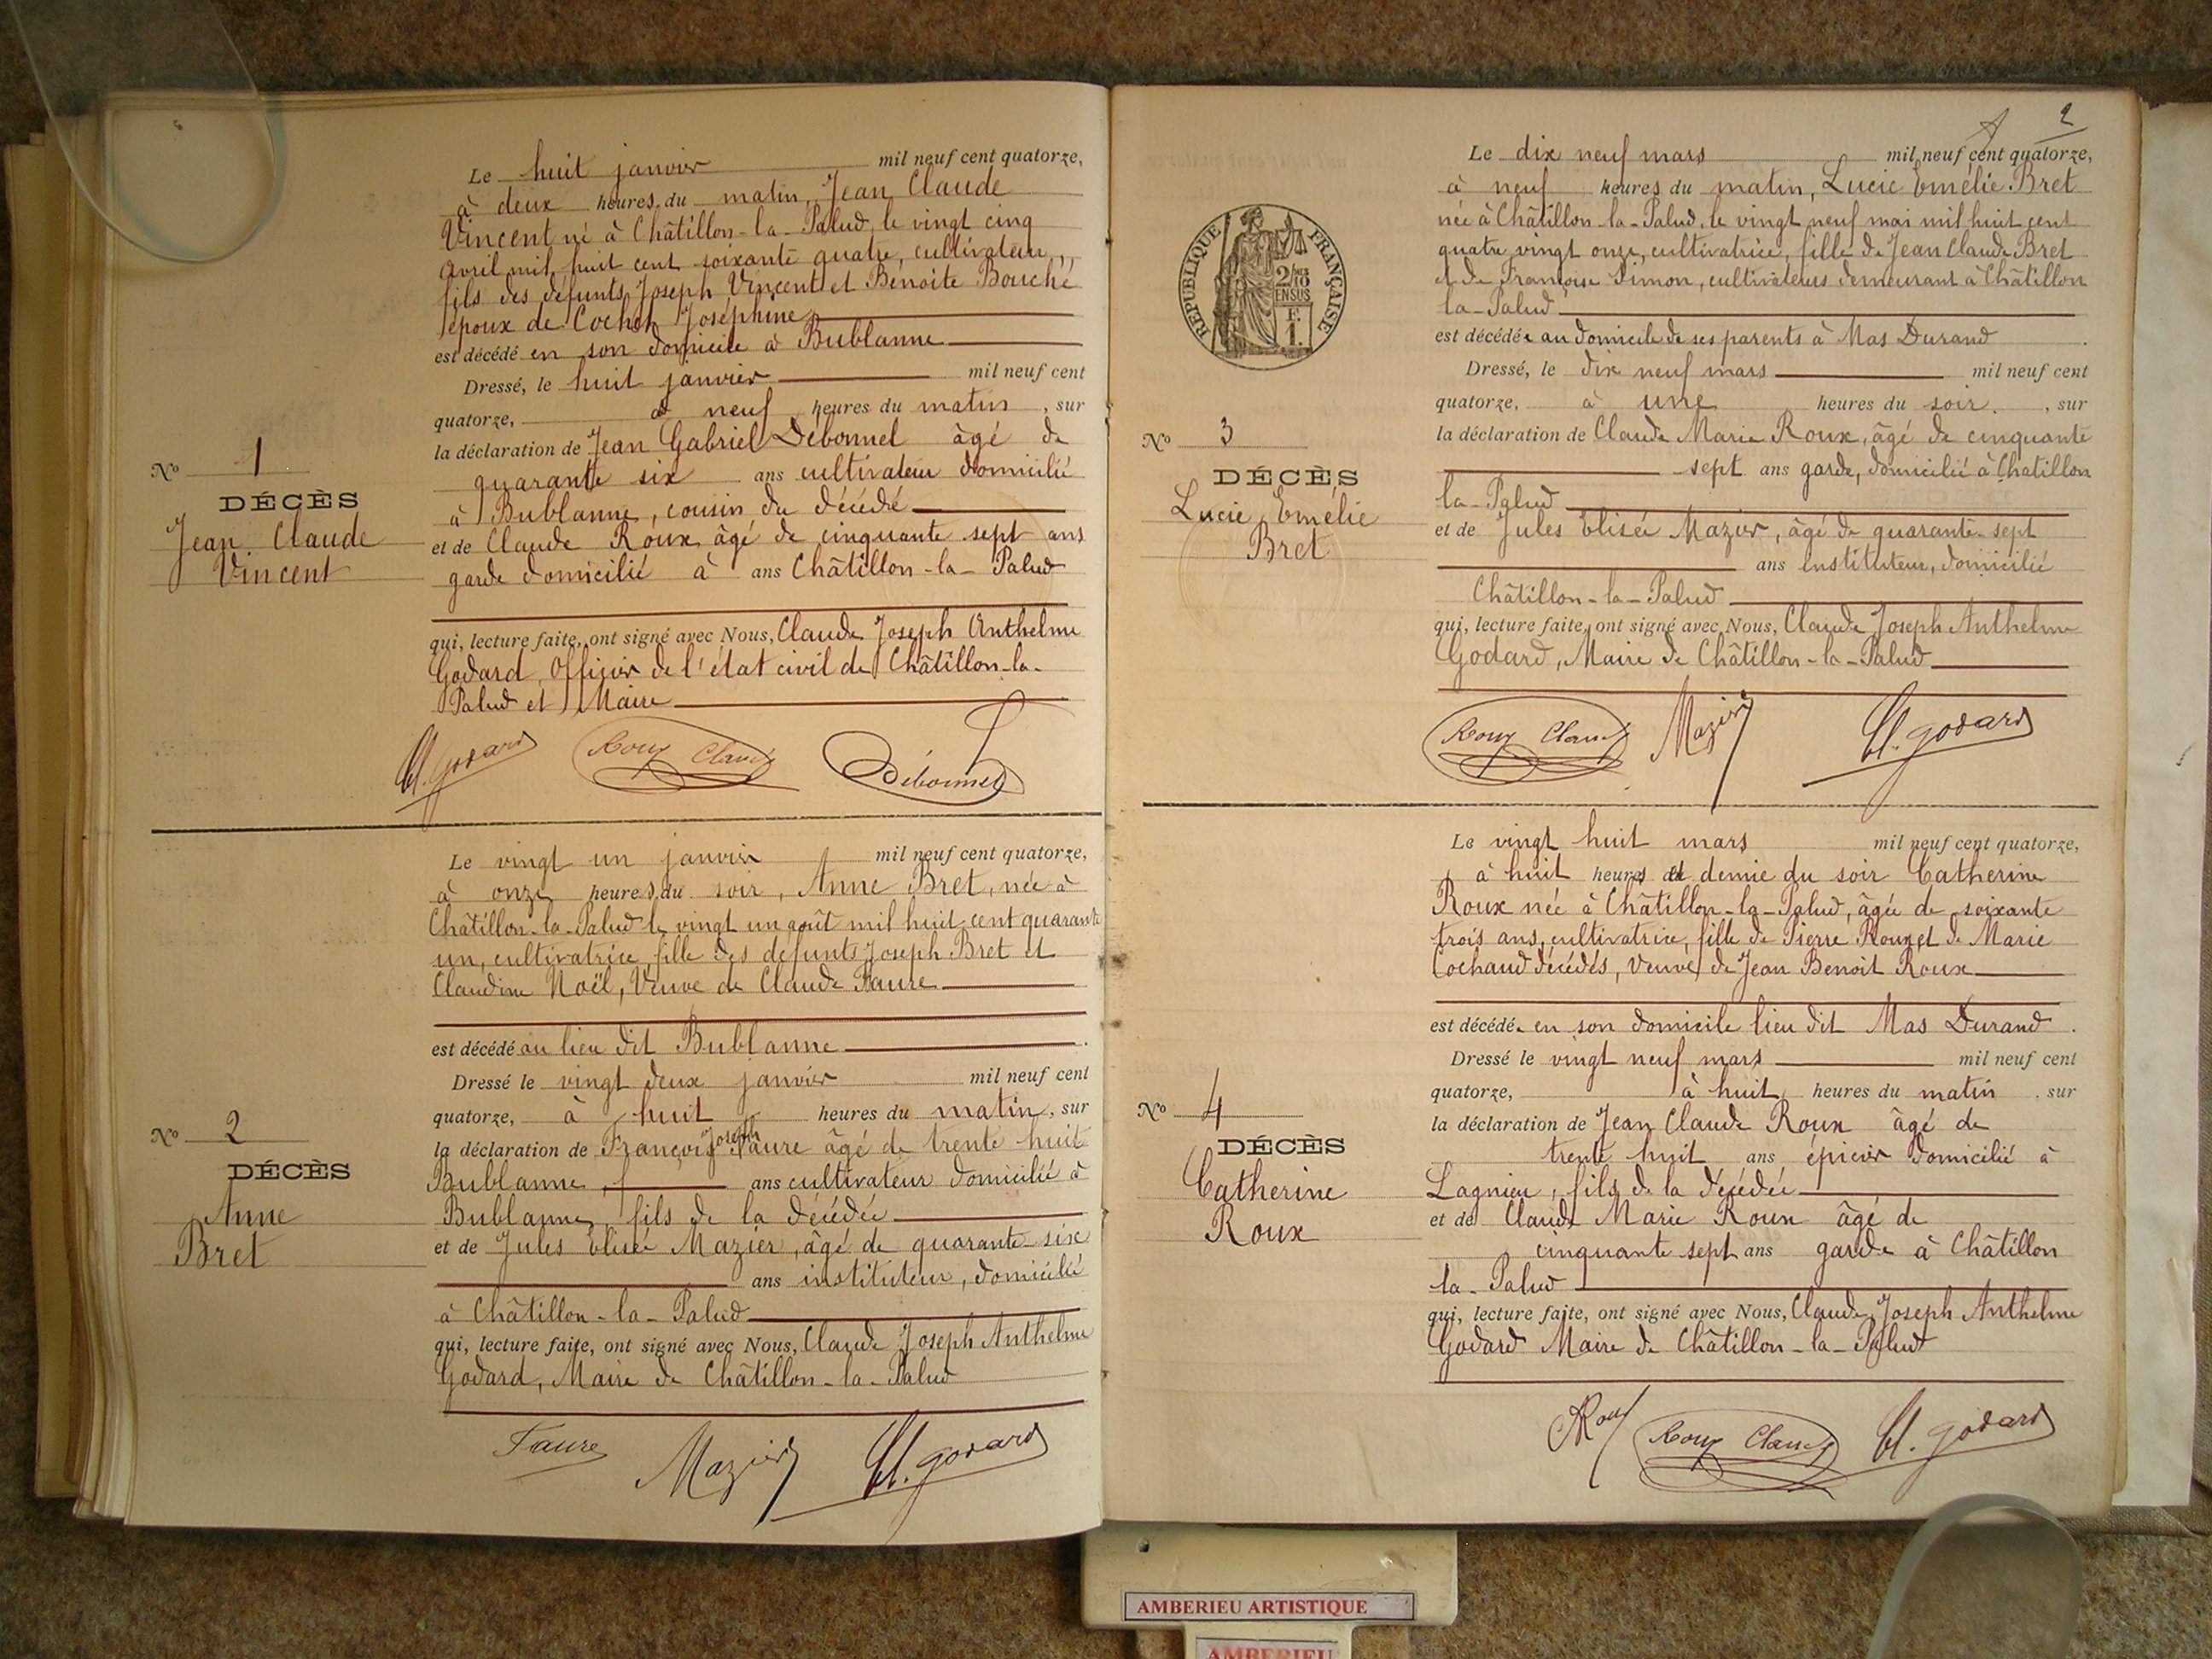 Le huit janvier mil neuf cent quatorze,
à deux heures du matin, Jean Claude
Vincent né à Châtillon-la-Palud, le vingt cinq
avril mil huit cent soixante quatre, cultivateur,
fils des défunts Joseph Vincent et Benoite Bouché
époux de Cochet Joséphine
est décédé en son domicile à Bublanne
Dressé, le huit janvier mil neuf cent
quatorze, à neuf heures du matin, sur
la déclaration de Jean Gabriel Débonnel âgé de
quarante six ans cultivateur domicilié
à Bublanne, cousin du décédé
et de Claude Roux âgé de cinquante sept ans
garde domicilié à ans Châtillon-la-Palud
qui, lecture faite, ont signé avec Nous, Claude Joseph Anthelme
Godard, Officier de l'état civil de Châtillon-la-
Palud et Maire
Cl. Godard Roux Claude Débonnel
No 1
DÉCÈS
Jean Claude
Vincent
Le vingt un janvier mil neuf cent quatorze,
à onze heures du soir, Anne Bret, née à
Châtillon-la-Palud le vingt un août mil huit cent quarante
un, cultivatrice, fille des défunts Joseph Bret et
Claudine Noël, Veuve de Claude Faure
est décédé au lieu dit Bublanne
Dressé le vingt deux janvier mil neuf cent
quatorze, à huit heures du matin, sur
la déclaration de François Joseph Faure âgé de trente huit
Bublanne, ans cultivateur domicilié à
Bublanne, fils de la décédée
et de Jules Elisée Mazier, âgé de quarante-six
ans instituteur, domicilié
à Châtillon-la-Palud
qui, lecture faite, ont signé avec Nous, Claude Joseph Anthelme
Godard, Maire de Châtillon-la-Palud
Faure Mazier Cl. Godard
No 2
DÉCÈS
Anne
Bret
2
Le dix neuf mars mil neuf cent quatorze,
à neuf heures du matin, Lucie Emélie Bret
née à Châtillon-la-Palud, le vingt neuf mai mil huit cent
quatre vingt onze, cultivatrice, fille de Jean Claude Bret
et de Françoise Simon, cultivateurs demeurant à Châtillon
la-Palud
est décédée au domicile de ses parents à Mas Durand.
Dressé, le dix neuf mars mil neuf cent
quatorze, à une heures du soir, sur
la déclaration de Claude Marie Roux, âgé de cinquante
sept ans garde, domicilié à Chatillon
la-Palud
et de Jules Elisée Mazier, âgé de quarante-sept
ans instituteur, domicilié
Châtillon-la-Palud
qui, lecture faite, ont signé avec Nous, Claude Joseph Anthelme
Godard, Maire de Châtillon-la-Palud
Roux Claude Mazier Cl. Godard
RÉPUBLIQUE FRANÇAISE
2/10mes
EN SUS
F.
1.
No 3
DÉCÈS
Lucie Emélie
Bret
Le vingt huit mars mil neuf cent quatorze,
à huit heures et demie du soir Catherine
Roux née à Châtillon-la-Palud, âgée de soixante
trois ans, cultivatrice, fille de Pierre Roux et de Marie
Cochaud décédés, Veuve de Jean Benoit Roux
est décédée en son domicile lieu dit Mas Durand.
Dressé le vingt neuf mars mil neuf cent
quatorze, à huit heures du matin, sur
la déclaration de Jean Claude Roux âgé de
trente huit ans épicier domicilié à
Lagnieu, fils de la décédée
et de Claude Marie Roux âgé de
cinquante sept ans garde à Châtillon
la-Palud
qui, lecture faite, ont signé avec Nous, Claude Joseph Anthelme
Godard Maire de Châtillon-la-Palud
Roux Roux Claude Cl. Godard
No 4
DÉCÈS
Catherine
Roux
AMBERIEU ARTISTIQUE
AMBERIEU